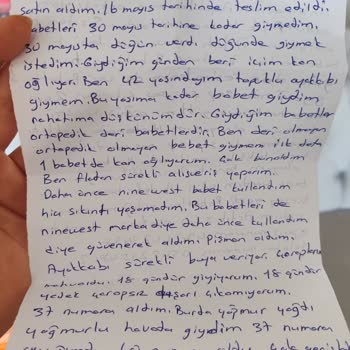 satın aldım. 16 mayıs tarihinde teslim edildi.
Babetleri 30 mayıs tarihine kadar giymedim.
30 mayısta düğün vardı düğünde giymek
istedim. Giydiğim günden beri içim kan
ağlıyor. Ben 42 yaşındayım topuklu ayakkabı
giymem. Bu yaşıma kadar babet giydim
rahatıma düşkünümdür. Giydiğim babetler
ortopedik deri babetlerdir. Ben deri olmayan
ortopedik olmayan babet giymem ilk defa
1 babetde kan ağlıyorum. Çok bunaldım
Ben flodan sürekli alışveriş yaparım.
Daha önce nine west babet kullandım
hiç sıkıntı yaşamadım. Bu babetleri de
ninewest marka diye daha önce kullandım
diye güvenerek aldım. Pişman oldum.
Ayakkabı sürekli boya veriyor. Çoraplarım
mahvoldu. 18 gündür giyiyorum. 18 gündür
yedek çorapsız dışarı çıkamıyorum.
37 numara aldım. Burda yağmur yağdı
yağmurlu havada giydim 37 numara